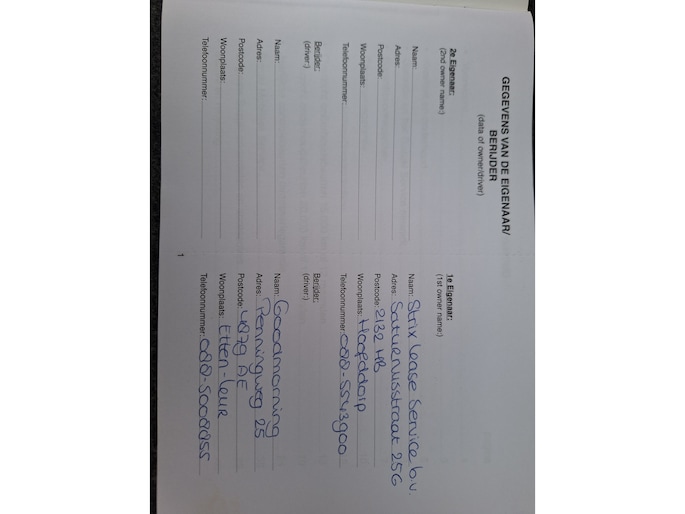 GEGEVENS VAN DE EIGENAAR/
BERIJDER
(data of owner/driver)
2e Eigenaar:
(2nd owner name:)
Naam:
Adres:
Postcode:
Woonplaats:
Telefoonnummer:
Berijder:
(driver:)
Naam:
Adres:
Postcode:
Woonplaats:
Telefoonnummer:
1e Eigenaar:
(1st owner name:)
Naam: Strix Lease Service b.v.
Adres: Saturnusstraat 25G
Postcode: 2132 HB
Woonplaats: Hoofddorp
Telefoonnummer: 088-5543900
Berijder:
(driver:)
Naam: Goodmorning
Adres: Penningweg 25
Postcode: 4879 AE
Woonplaats: Etten-Leur
Telefoonnummer: 088-5008855
1